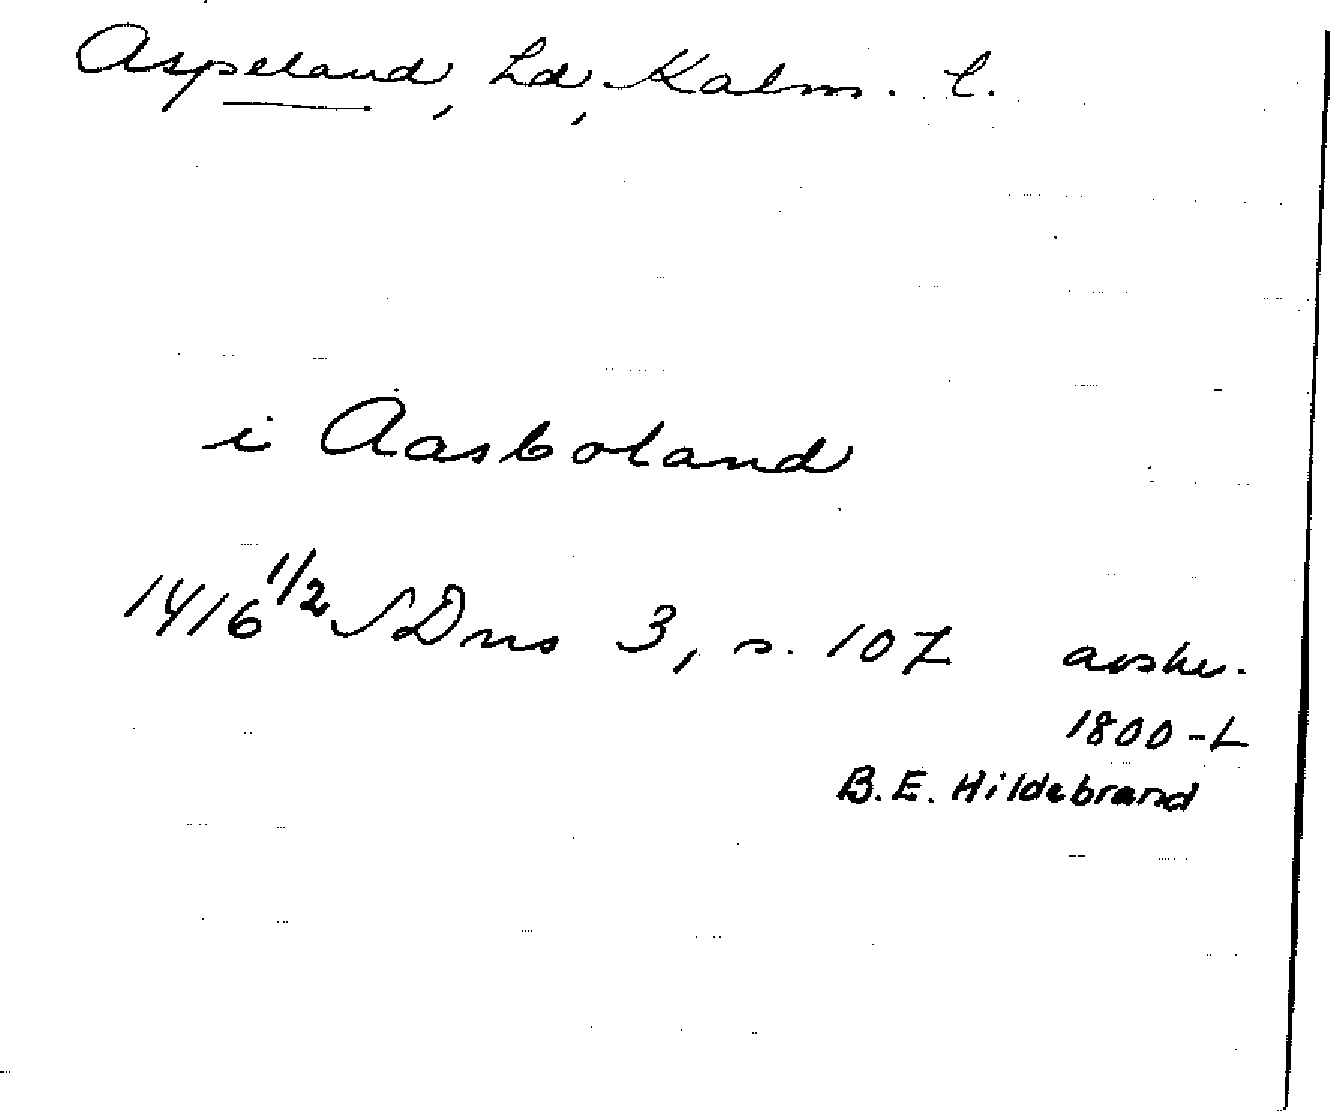 Aspeland, Ld, Kalm. l.
i Aasboland
1416 1/2 SDns 3, s. 107 avskr.
1800-t
B.E. Hildebrand